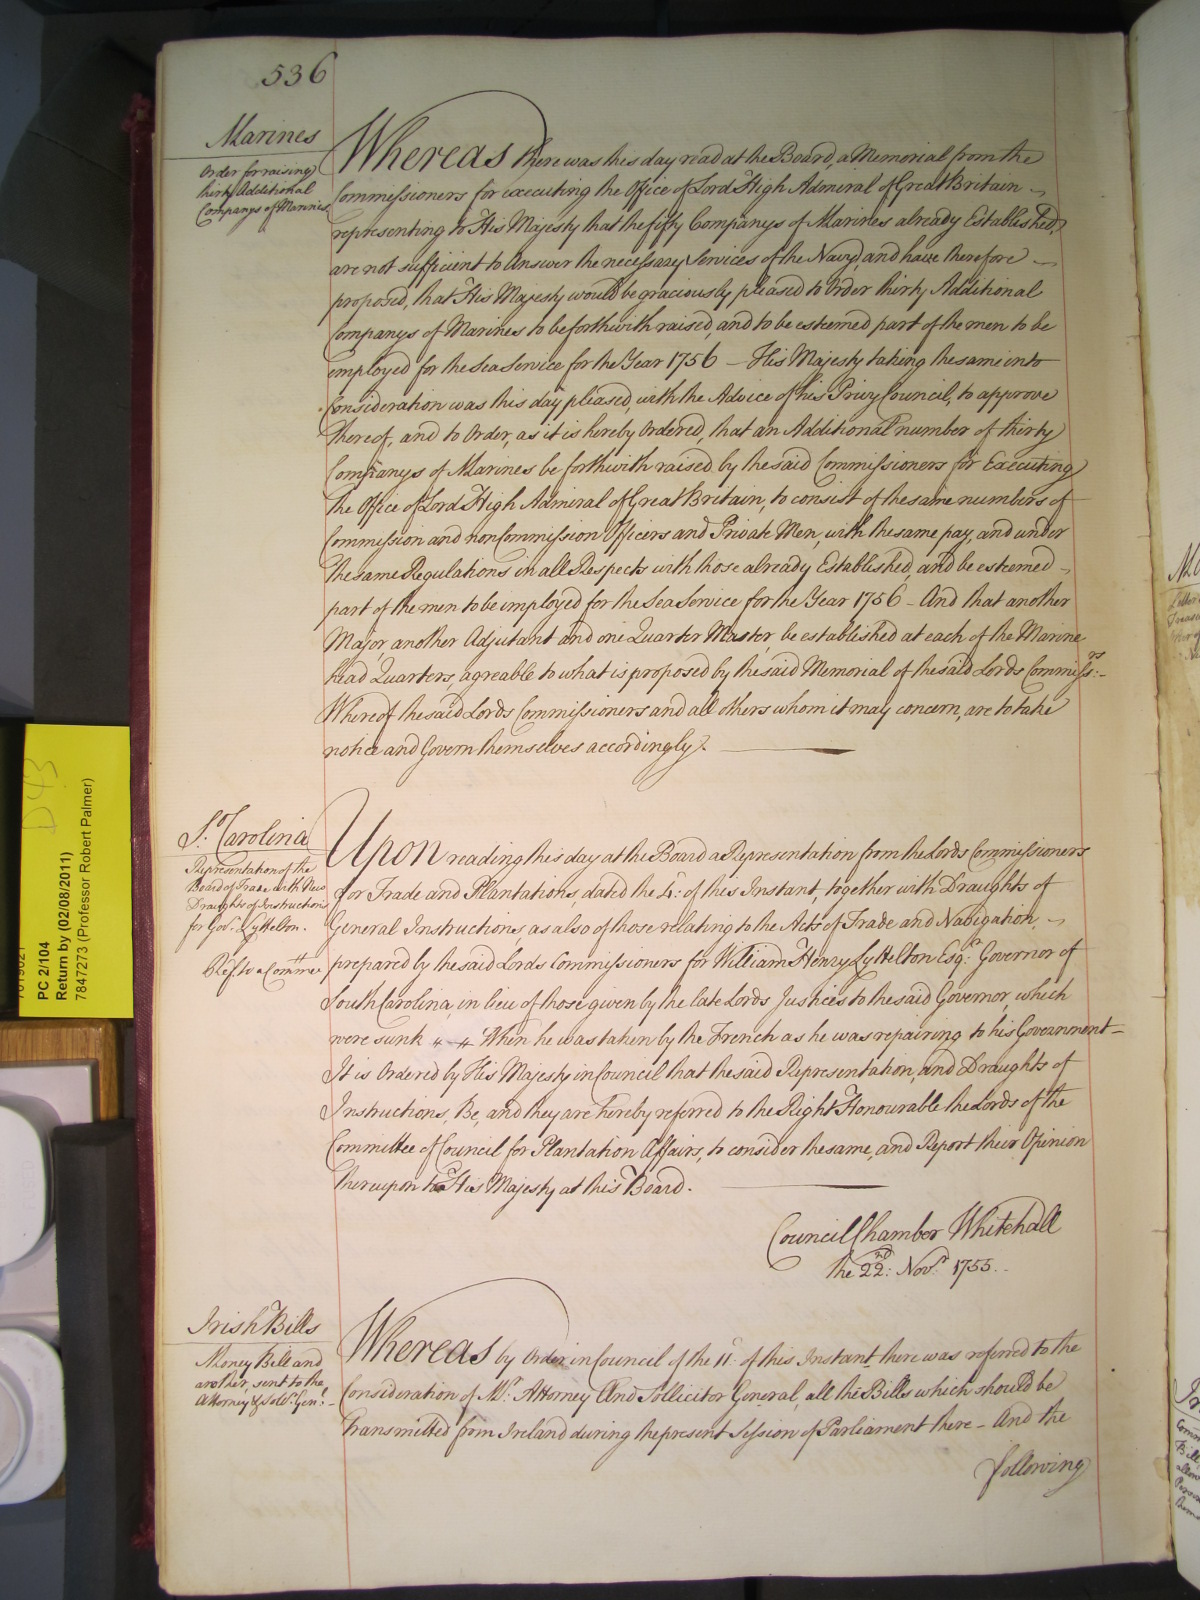 536
Marines
Order for raising
thirty Additional
Companys of Marines
Whereas there was this day read at the Board, a Memorial from the
Commissioners for executing the Office of Lord High Admiral of Great Britain
representing to His Majesty that the fifty Companys of Marines already Established,
are not sufficient to Answer the necessary Services of the Navy, and have therefore
proposed, that His Majesty would be graciously pleased to Order thirty Additional
Companys of Marines to be forthwith raised, and to be esteemed part of the men to be
employed for the Sea Service for the Year 1756 – His Majesty taking the same into
Consideration was this day pleased, with the Advice of his Privy Council, to approve
thereof, and to Order, as it is hereby Ordered, that an Additional number of thirty
Companys of Marines be forthwith raised by the said Commissioners for Executing
the Office of Lord High Admiral of Great Britain, to consist of the same numbers of
Commission and non Commission Officers and Private Men, with the same pay, and under
the same Regulations in all Respects with those already Established, and be esteemed
part of the men to be employed for the Sea Service for the Year 1756 – And that another
Major another Adjutant and one Quarter Master, be established at each of the Marine
head Quarters, agreable to what is proposed by the said Memorial of the said Lords Commissrs:
Whereof the said Lords Commissioners and all others whom it may concern, are to take
notice and Govern themselves accordingly.
So. Carolina
Representation of the
Board of Trade with two
Draughts of Instructions
for Govr. Lyttelton.
Ref. to a Committee
Upon reading this day at the Board a Representation from the Lords Commissioners
for Trade and Plantations, dated the 4: of this Instant, together with Draughts of
General Instructions, as also of those relating to the Acts of Trade and Navigation,
prepared by the said Lords Commissioners for William Henry Lyttelton Esqr. Governor of
South Carolina, in lieu of those given by the late Lords Justices to the said Governor, which
were sunk When he was taken by the French as he was repairing to his Government –
It is Ordered by His Majesty in Council that the said Representation, and Draughts of
Instructions, Be, and they are hereby referred to the Right Honourable the Lords of the
Committee of Council for Plantation Affairs, to consider the same, and Report their Opinion
thereupon to His Majesty at this Board.
Council Chamber Whitehall
the 22nd: Novr. 1755.
Irish Bills
Money Bill and
another, sent to the
Attorney & Sollr. Genl.
Whereas by Order in Council of the 11th of this Instant there was referred to the
Consideration of Mr. Attorney And Sollicitor General, all the Bills which should be
transmitted from Ireland during the present Session of Parliament there – And the
following
D43
PC 2/104
Return by (02/08/2011)
7847273 (Professor Robert Palmer)